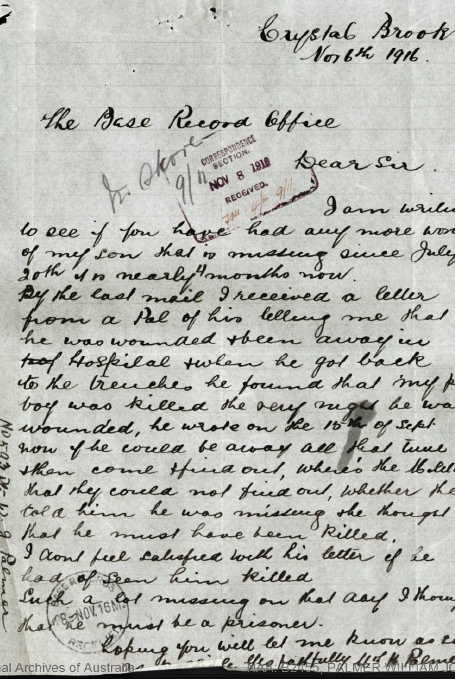 Crystal Brook
Nov 6th 1916.
The Base Record Office
Dear Sir
In Skore
9/11
CORRESPONDENCE
SECTION.
NOV 8 1916
RECEIVED.
9/11
I am writin
to see if you have had any more wor
of my son that is missing since July
20th it is nearly 4 months now.
By the last mail I received a letter
from a Pal of his telling me that
he was wounded & been away in
Hospital & when he got back
to the trenches he found that my p
boy was killed the very nig he wa
wounded, he wrote on the 15th of Sept
now if he could be away all that time
& then come & find out, where is the
that they could not find out, whether the
told him he was missing she thought
that he must have been killed.
I dont feel satisfied with his letter if he
had of seen him killed
Such a lot missing on that day I thoug
that he must be a prisoner.
hoping you will let me know as
faithfully
8-NOV.16
W J Palmer
nal Archives of Australia
NAA: B2455, PALMER WILLIAM JO